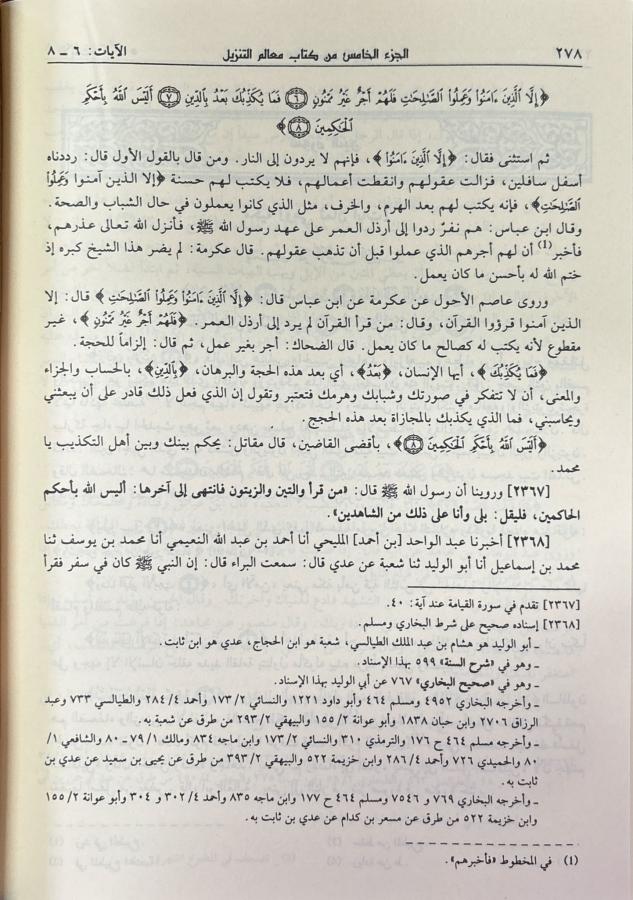 ٢٧٨ الجزء الخامس من كتاب معالم التنزيل الآيات: ٦ ـ ٨
﴿إِلَّا الَّذِينَ ءَامَنُوا وَعَمِلُوا الصَّالِحَاتِ فَلَهُمْ أَجْرٌ غَيْرُ مَمْنُونٍ ﴿٦﴾ فَمَا يُكَذِّبُكَ بَعْدُ بِالدِّينِ ﴿٧﴾ أَلَيْسَ اللَّهُ بِأَحْكَمِ
الْحَاكِمِينَ ﴿٨﴾﴾
ثم استثنى فقال: ﴿إِلَّا الَّذِينَ ءَامَنُوا﴾، فإنهم لا يردون إلى النار. ومن قال بالقول الأول قال: رددناه
أسفل سافلين، فزالت عقولهم وانقطت أعمالهم، فلا يكتب لهم حسنة ﴿إلا الذين آمنوا وَعَمِلُوا
الصَّالِحَاتِ﴾، فإنه يكتب لهم بعد الهرم، والخرف، مثل الذي كانوا يعملون في حال الشباب والصحة.
وقال ابن عباس: هم نفرٌ ردوا إلى أرذل العمر على عهد رسول الله ﷺ، فأنزل الله تعالى عذرهم،
فأخبر(1) أن لهم أجرهم الذي عملوا قبل أن تذهب عقولهم. قال عكرمة: لم يضر هذا الشيخ كبره إذ
ختم الله له بأحسن ما كان يعمل.
وروى عاصم الأحول عن عكرمة عن ابن عباس قال: ﴿إِلَّا الَّذِينَ ءَامَنُوا وَعَمِلُوا الصَّالِحَاتِ﴾ قال: إلا
الذين آمنوا قرؤوا القرآن، وقال: من قرأ القرآن لم يرد إلى أرذل العمر. ﴿فَلَهُمْ أَجْرٌ غَيْرُ مَمْنُونٍ﴾، غير
مقطوع لأنه يكتب له كصالح ما كان يعمل. قال الضحاك: أجر بغير عمل، ثم قال: إلزاماً للحجة.
﴿فَمَا يُكَذِّبُكَ﴾، أيها الإنسان، ﴿بَعْدُ﴾، أي بعد هذه الحجة والبرهان، ﴿بِالدِّينِ﴾، بالحساب والجزاء
والمعنى، أن لا تتفكر في صورتك وشبابك وهرمك فتعتبر وتقول إن الذي فعل ذلك قادر على أن يبعثني
ويحاسبني، فما الذي يكذبك بالمجازاة بعد هذه الحجج.
﴿أَلَيْسَ اللَّهُ بِأَحْكَمِ الْحَاكِمِينَ ﴿٨﴾﴾، بأقضى القاضين، قال مقاتل: يحكم بينك وبين أهل التكذيب يا
محمد.
[٢٣٦٧] وروينا أن رسول الله ﷺ قال: «من قرأ والتين والزيتون فانتهى إلى آخرها: أليس الله بأحكم
الحاكمين، فليقل: بلى وأنا على ذلك من الشاهدين».
[٢٣٦٨] أخبرنا عبد الواحد [بن أحمد] المليحي أنا أحمد بن عبد الله النعيمي أنا محمد بن يوسف ثنا
محمد بن إسماعيل أنا أبو الوليد ثنا شعبة عن عدي قال: سمعت البراء قال: إن النبي ﷺ كان في سفر فقرأ
[٢٣٦٧] تقدم في سورة القيامة عند آية: ٤٠.
[٢٣٦٨] إسناده صحيح على شرط البخاري ومسلم.
ـ أبو الوليد هو هشام بن عبد الملك الطيالسي، شعبة هو ابن الحجاج، عدي هو ابن ثابت.
ـ وهو في «شرح السنة» ٥٩٩ بهذا الإسناد.
ـ وهو في «صحيح البخاري» ٧٦٧ عن أبي الوليد بهذا الإسناد.
ـ وأخرجه البخاري ٤٩٥٢ ومسلم ٤٦٤ وأبو داود ١٢٢١ والنسائي ٢/ ١٧٣ وأحمد ٤/ ٢٨٤ والطيالسي ٧٣٣ وعبد
الرزاق ٢٧٠٦ وابن حبان ١٨٣٨ وأبو عوانة ٢/ ١٥٥ والبيهقي ٢/ ٢٩٣ من طرق عن شعبة به.
ـ وأخرجه مسلم ٤٦٤ ح ١٧٦ والترمذي ٣١٠ والنسائي ٢/ ١٧٣ وابن ماجه ٨٣٤ ومالك ١/ ٧٩ ـ ٨٠ والشافعي ١/
٨٠ والحميدي ٧٢٦ وأحمد ٤/ ٢٨٦ وابن خزيمة ٥٢٢ والبيهقي ٢/ ٣٩٣ من طرق عن يحيى بن سعيد عن عدي بن
ثابت به.
ـ وأخرجه البخاري ٧٦٩ و ٧٥٤٦ ومسلم ٤٦٤ ح ١٧٧ وابن ماجه ٨٣٥ وأحمد ٤/ ٣٠٢ و ٣٠٤ وأبو عوانة ٢/ ١٥٥
وابن خزيمة ٥٢٢ من طرق عن مسعر بن كدام عن عدي بن ثابت به.
(1) في المخطوط «فأخبرهم».